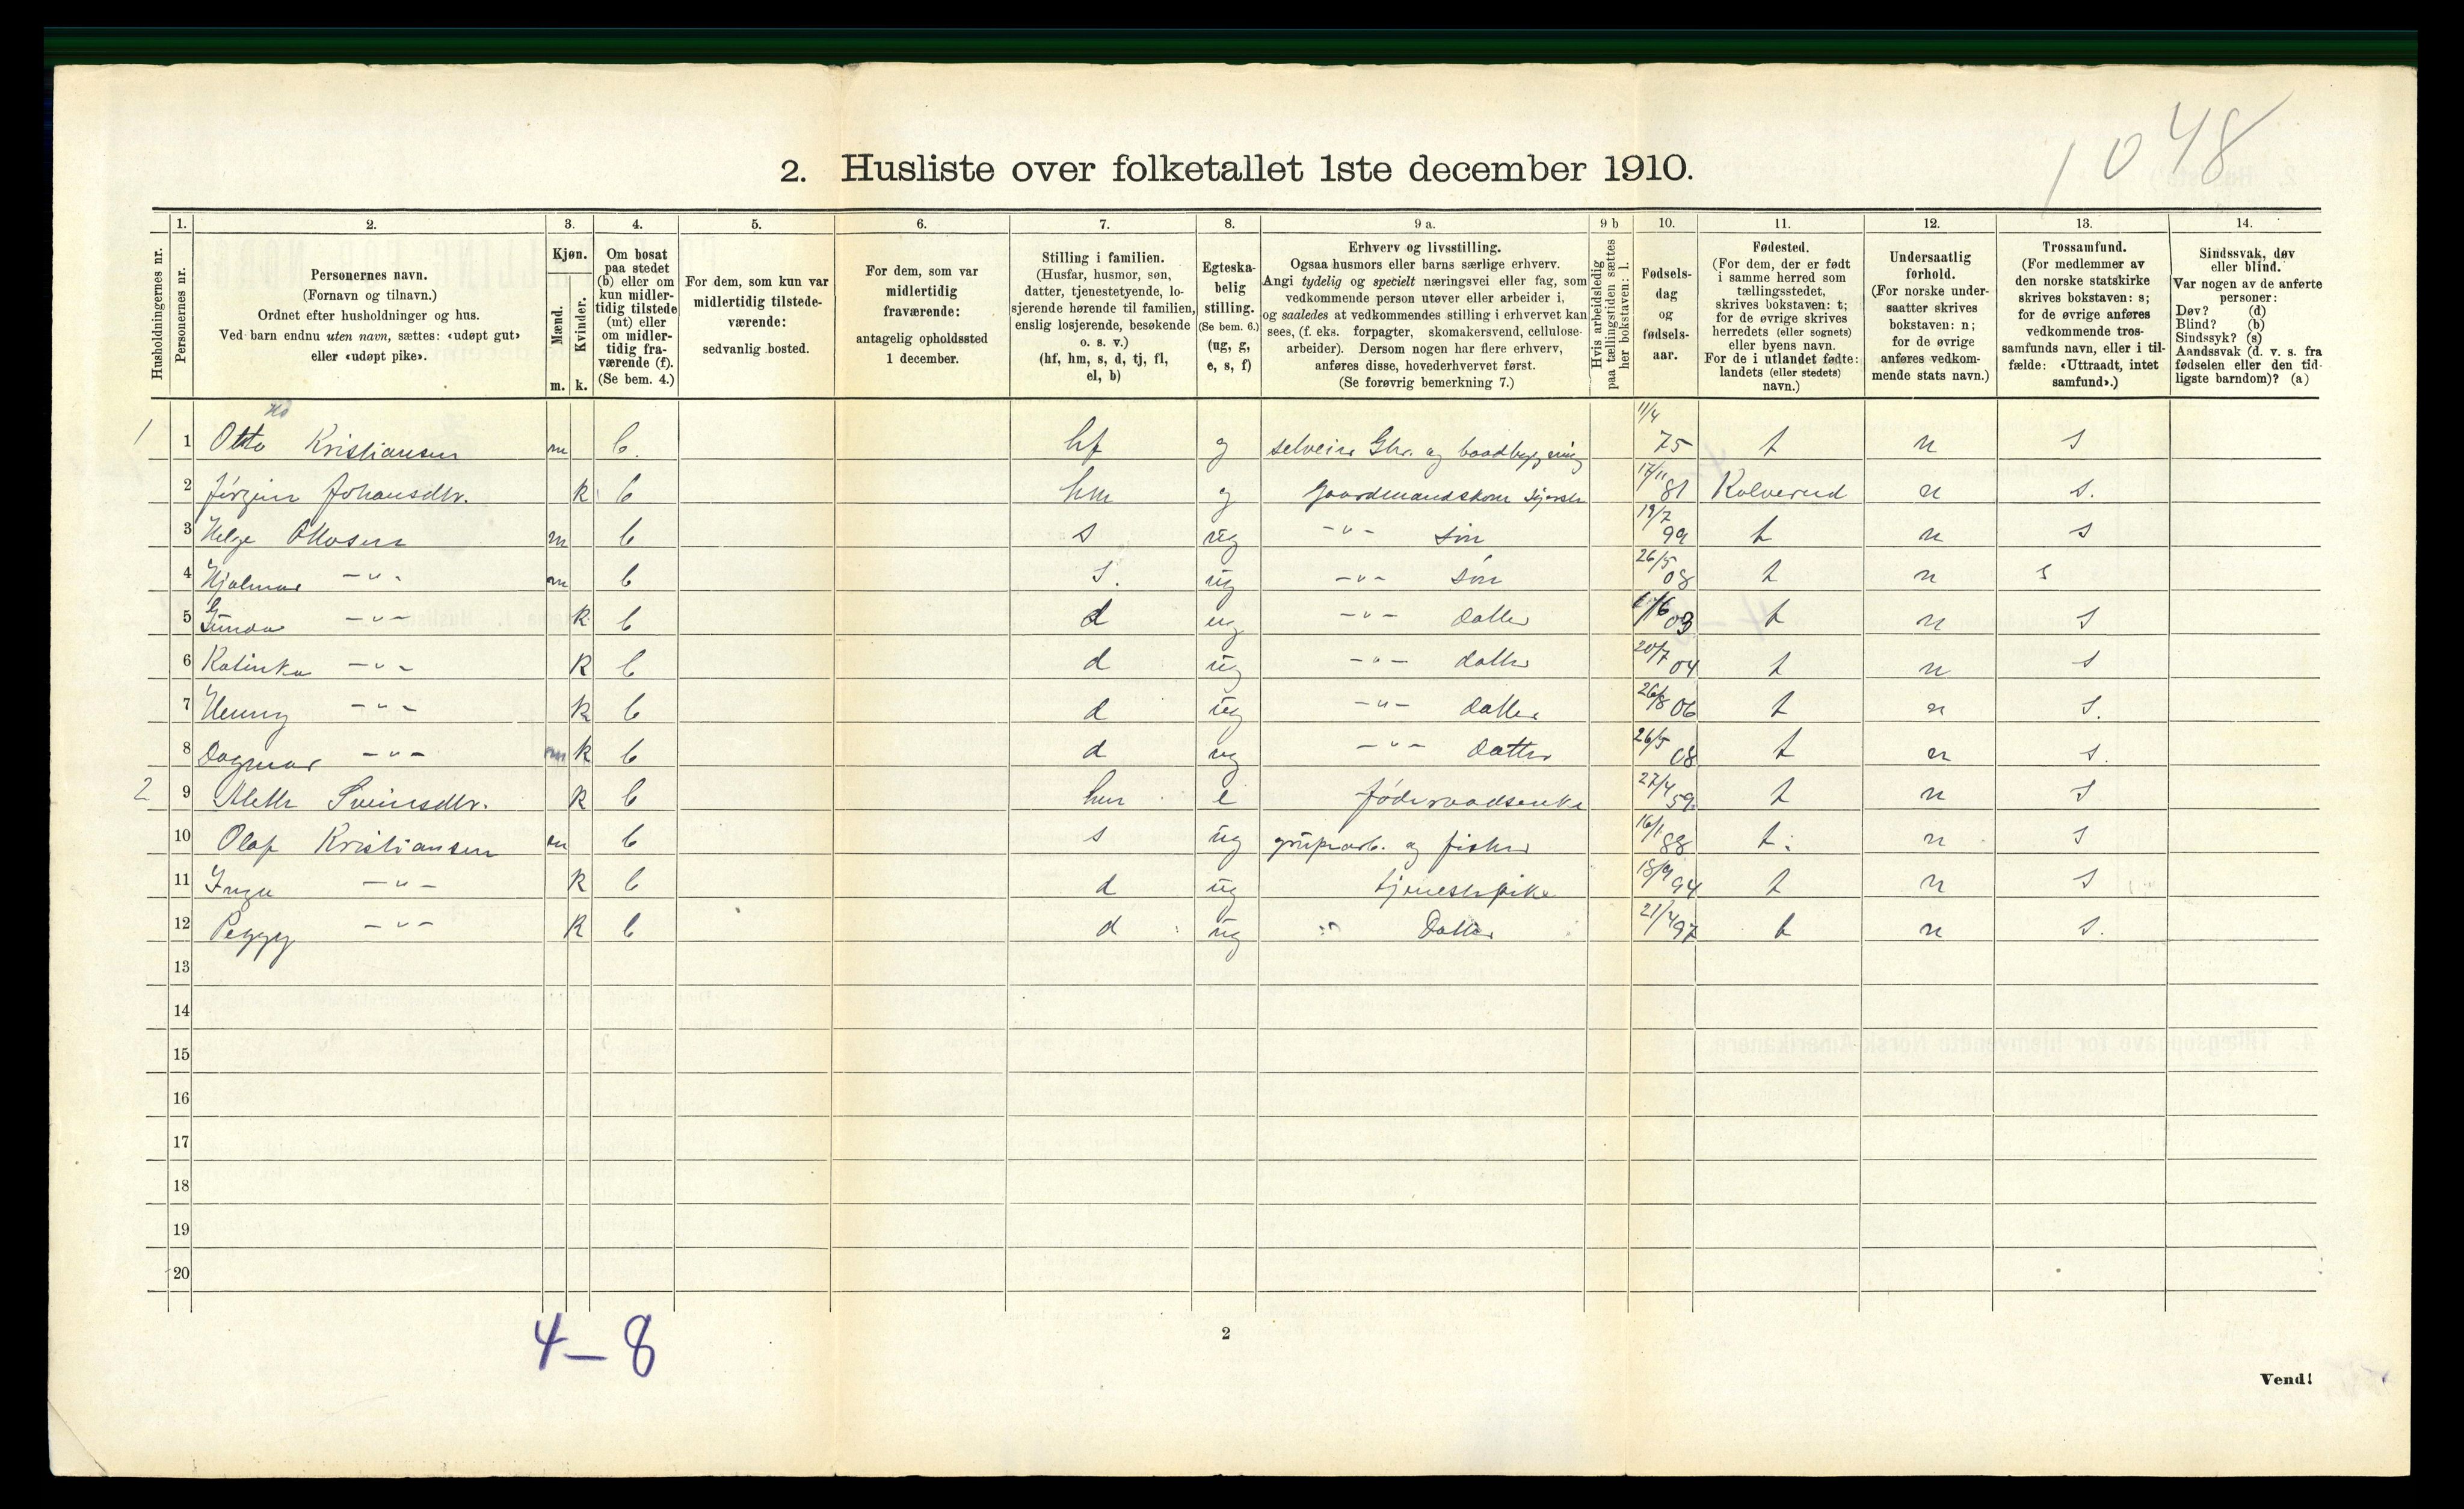 1048
2. Husliste over folketallet 1ste december 1910.
Husholdningernes nr.
1. Personernes nr.
2. Personernes navn. (Fornavn og tilnavn.) Ordnet efter husholdninger og hus. Ved barn endnu uten navn, sættes: «udøpt gut» eller «udøpt pike».
3. Kjøn. Mænd. m. Kvinder. k.
4. Om bosat paa stedet (b) eller om kun midlertidig tilstede (mt) eller om midlertidig fraværende (f). (Se bem. 4.)
5. For dem, som kun var midlertidig tilstedeværende: sedvanlig bosted.
6. For dem, som var midlertidig fraværende: antagelig opholdssted 1 december.
7. Stilling i familien. (Husfar, husmor, søn, datter, tjenestetyende, losjerende hørende til familien, enslig losjerende, besøkende o. s. v.) (hf, hm, s, d, tj, fl, el, b)
8. Egteskabelig stilling. (Se bem. 6.) (ug, g, e, s, f)
9 a. Erhverv og livsstilling. Ogsaa husmors eller barns særlige erhverv. Angi tydelig og specielt næringsvei eller fag, som vedkommende person utøver eller arbeider i, og saaledes at vedkommendes stilling i erhvervet kan sees, (f. eks. forpagter, skomakersvend, cellulosearbeider). Dersom nogen har flere erhverv, anføres disse, hovederhvervet først. (Se forøvrig bemerkning 7.)
9 b Hvis arbeidsledig paa tællingstiden sættes her bokstaven: l.
10. Fødselsdag og fødselsaar.
11. Fødested. (For dem, der er født i samme herred som tællingsstedet, skrives bokstaven: t; for de øvrige skrives herredets (eller sognets) eller byens navn. For de i utlandet fødte: landets (eller stedets) navn.)
12. Undersaatlig forhold. (For norske undersaatter skrives bokstaven: n; for de øvrige anføres vedkommende stats navn.)
13. Trossamfund. (For medlemmer av den norske statskirke skrives bokstaven: s; for de øvrige anføres vedkommende trossamfunds navn, eller i tilfælde: «Uttraadt, intet samfund».)
14. Sindssvak, døv eller blind. Var nogen av de anførte personer: Døv? (d) Blind? (b) Sindssyk? (s) Aandssvak (d. v. s. fra fødselen eller den tidligste barndom)? (a)
1 1 Otto Kristiansen m b. hf g selveier Gbr. og baadbygning 11/4 75 t n s
2 Jørgine Johansdtr. k b hm g gaardmandskone 17/11 81 Kolvereid n s.
3 Helge Ottosen m b s ug -"- søn 19/7 99 t n s
4 Hjalmar -"- m b s. ug -"- søn 26/5 08 t n s
5 Gunda -"- k b d ug -"- datter 17/6 03 t n s
6 Katinka -"- k b d ug -"- datter 20/7 04 t n s
7 Henny -"- k b d ug -"- datter 26/8 06 t n s.
8 Dagmar -"- k b d ug -"- datter 26/5 08 t n s.
2 9 Meth Sveinsdtr. k b hm e føderaadsenke 27/4 59 t n s
10 Olaf Kristiansen m b s ug grubearb. og fisker 16/1 88 t. n s
11 Inga -"- k b d ug tjenestepike 18/9 94 t n s
12 Peggy -"- k b d ug Datter 21/4 97 t n s.
13
14
15
16
17
18
19
20
4 – 8
2
Vend!